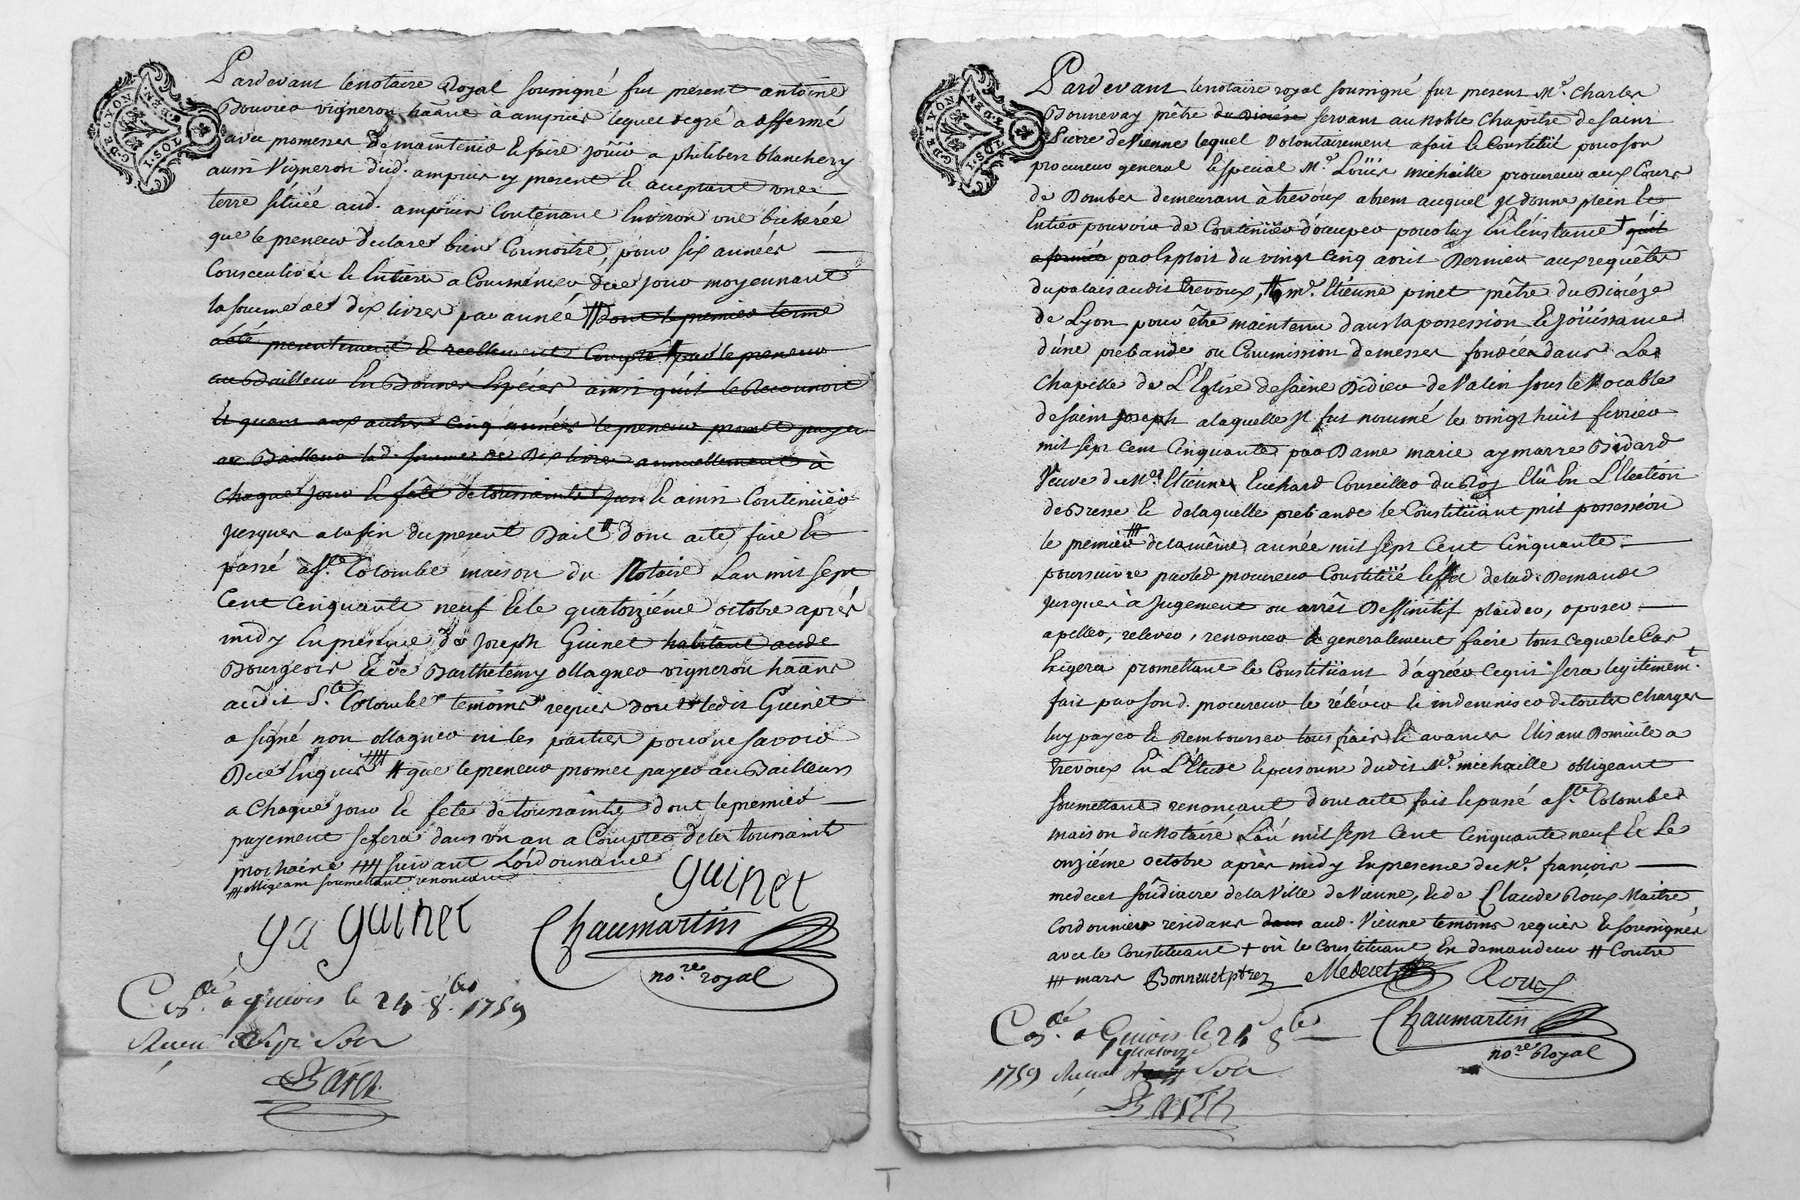 G. DE LYON
I. SOL
D. DEN.
Pardevant lenotaire Royal soussigné fut présent antoine
vigneron hãant à ampuis lequel degré a affermé
avec promesses de maintenir et faire joüir a philibert blanchery
aussi Vigneron dud. ampuis cy present et acceptant une
terre sitüée aud. ampuis Contenant Environ une bicherée
que le preneur declare bien Connoitre, pour six années
Consecutives et Entieres a Commencer de ce jour moyennant
la somme de dix livres par année # dont le premier terme
a été presentement et reellement Compté par le preneur
au Bailleur En Bonnes Especes ainsi qu'il le Reconnoit
Et quant aux autres Cinq années le preneur promet payer
au Bailleur lad. somme de Dix livres annuellement à
chaque jour et fête de toussaints et ainsi Continüer
jusques a la fin du present Bail donc acte fait et
passé à Ste. Colombe maison du Notaire Lan mil sept
Cent Cinquante neuf et le quatorziéme octobre aprés
midy En presence de Joseph Guinet habitant aude
Bourgeois et de Barthélemy Magner vigneron hãans
audit Ste. Colombe temoins requis dont ledit Guinet
a signé non Magner ni les parties pour ne savoir
De ce Enquis #### # que le preneur promet payer au Bailleur
a chaque jour et fête de toussaints dont le premier
payement se fera dans un an a Compter de la toussaint
prochaine #### suivant L'ordonnance
## obligeant soumettant renonçant
guinet
guinet
Chaumartin
no.re royal
Con.lé a Givors le 24 8.bre 1759
Recu Sols
G. DE LYON
I. SOL
D. DEN.
Pardevant lenotaire royal soussigné fut present Mr. Charles
Bonnevay prêtre du Diocese servant au noble Chapitre de saint
Pierre de Vienne lequel volontairement a fait et Constitüé pour son
procureur general et special Mr. Loüis michaille procureur aux Cours
de Dombes demeurant à trevoux absent auquel Il donne plein et
Entier pouvoir de Continüer d'ocuper pour luy En l'instance + qu'il
a formée par Exploit du vingt Cinq avril Dernier aux requêtes
du palais audit trevoux, # mr. Etienne pinet prêtre du Diocéze
de Lyon pour être maintenu dans la possession et Joüissance
d'une prebande ou Commission de messes fondée dans La
Chapelle de L'Eglise de saint Didier de Valin sous le Vocable
de saint joseph a laquelle Il fut nommé le vingt huit fevrier
mil sept Cent Cinquante par Dame marie aymarre Bidard
Veuve de Mre. Etienne Euchard Conseiller du Roy Elû En L'Election
de Bresse et de laquelle prebande le Constitüant prit possession
le premier ### de la même année mil sept Cent Cinquante
poursuivre par led procureur Constitüé l'effet de lad. Demande
jusques à Jugement ou arrêt Deffinitif plaider, oposer
apeller, relever, renoncer et generalement faire tout ce que le Cas
Exigera promettant le Constitüant d'agréer ce qui sera legitimement
fait par son d. procureur le rélever et indemniser de toutes charges
luy payer et Rembourser tous frais et avances Elisant Domicile a
trevoux En L'Etude et personne dudit Mr. michaille obligeant
soumettant renonçant dont acte fait et passé a Ste. Colombe
maison du Notaire, Lan mil sept Cent Cinquante neuf et Le
onziéme octobre aprés midy En presence de Mr. françois
mederet soûdiacre de la Ville de Vienne, et de Claude Roux Maître
Cordonnier residans dans aud. Vienne temoins requis et soussignés
avec le Constituant + où le Constituant Est demandeur # Contre
### mars Bonnevet ptre Mederet Roux
Chaumartin
no.re Royal
Con.lé a Givors le 24 8.bre
1759 Recu quatorze Sols